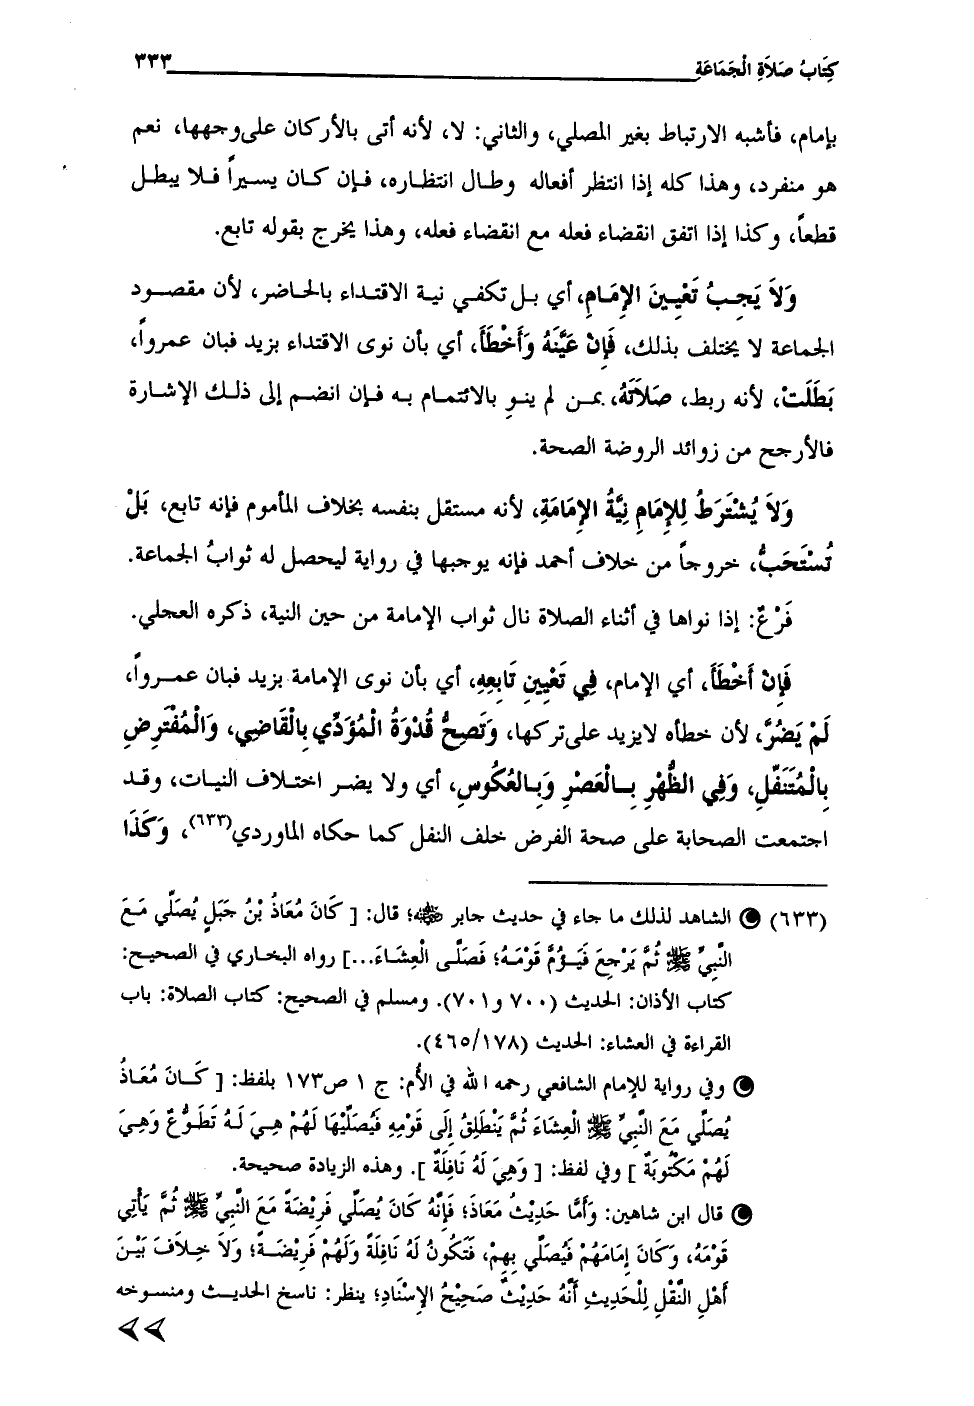 كِتَابُ صَلاَةِ الْجَمَاعَةِ ٣٣٣
بإمام، فأشبه الارتباط بغير المصلي، والثاني: لا، لأنه أتى بالأركان على وجهها، نعم
هو منفرد، وهذا كله إذا انتظر أفعاله وطال انتظاره، فإن كان يسيراً فلا يبطل
قطعاً، وكذا إذا اتفق انقضاء فعله مع انقضاء فعله، وهذا يخرج بقوله تابع.
وَلاَ يَجِبُ تَعْيِينَ الإِمَامِ، أي بل تكفي نية الاقتداء بالحاضر، لأن مقصود
الجماعة لا يختلف بذلك، فَإِنْ عَيَّنَهُ وَأَخْطَأَ، أي بأن نوى الاقتداء بزيد فبان عمرواً،
بَطَلَتْ، لأنه ربط، صَلاَتَهُ، بمن لم ينوِ بالائتمام به فإن انضم إلى ذلك الإشارة
فالأرجح من زوائد الروضة الصحة.
وَلاَ يُشْتَرَطُ لِلإِمَامِ نِيَّةُ الإِمَامَةِ، لأنه مستقل بنفسه بخلاف المأموم فإنه تابع، بَلْ
تُسْتَحَبُّ، خروجاً من خلاف أحمد فإنه يوجبها في رواية ليحصل له ثوابُ الجماعة.
فَرْعٌ: إذا نواها في أثناء الصلاة نال ثواب الإمامة من حين النية، ذكره العجلي.
فَإِنْ أَخْطَأَ، أي الإمام، فِي تَعْيِينِ تَابِعِهِ، أي بأن نوى الإمامة بزيد فبان عمرواً،
لَمْ يَضُرَّ، لأن خطأه لا يزيد على تركها، وَتَصِحُّ قُدْوَةُ الْمُؤَدِّي بِالْقَاضِي، وَالْمُفْتَرِضِ
بِالْمُتَنَفِّلِ، وَفِي الظُّهْرِ بِالْعَصْرِ وَبِالعُكُوسِ، أي ولا يضر اختلاف النيات، وقد
اجتمعت الصحابة على صحة الفرض خلف النفل كما حكاه الماوردي(٦٣٣)، وَكَذَا
(٦٣٣) الشاهد لذلك ما جاء في حديث جابر ﷺ؛ قال: [ كَانَ مُعَاذُ بْنُ جَبَلٍ يُصَلِّي مَعَ
النَّبِيِّ ﷺ ثُمَّ يَرْجِعَ فَيَؤُمَّ قَوْمَهُ؛ فَصَلَّى الْعِشَاءَ...] رواه البخاري في الصحيح:
كتاب الأذان: الحديث (٧٠٠ و٧٠١). ومسلم في الصحيح: كتاب الصلاة: باب
القراءة في العشاء: الحديث (٤٦٥/١٧٨).
وفي رواية للإمام الشافعي رحمه الله في الأُم: ج ١ ص١٧٣ بلفظ: [ كَانَ مُعَاذُ
يُصَلِّي مَعَ النَّبِيِّ ﷺ الْعِشَاءَ ثُمَّ يَنْطَلِقُ إِلَى قَوْمِهِ فَيُصَلِّيْهَا لَهُمْ هِيَ لَهُ تَطَوُّعٌ وَهِيَ
لَهُمْ مَكْتُوبَةٌ ] وفي لفظ: [ وَهِيَ لَهُ نَافِلَةٌ ]. وهذه الزيادة صحيحة.
قال ابن شاهين: وَأَمَّا حَدِيْثُ مَعَاذَ؛ فَإِنَّهُ كَانَ يُصَلِّي فَرِيْضَةً مَعَ النَّبِيِّ ﷺ ثُمَّ يَأْتِي
قَوْمَهُ، وَكَانَ إِمَامَهُمْ فَيُصَلِّي بِهِمْ، فَتَكُونُ لَهُ نَافِلَةً وَلَهُمْ فَرِيْضَةً؛ وَلاَ خِلاَفَ بَيْنَ
أَهْلِ النَّقْلِ لِلْحَدِيثِ أَنَّهُ حَدِيْثٌ صَحِيْحُ الإِسْنَادِ؛ ينظر: ناسخ الحديث ومنسوخه